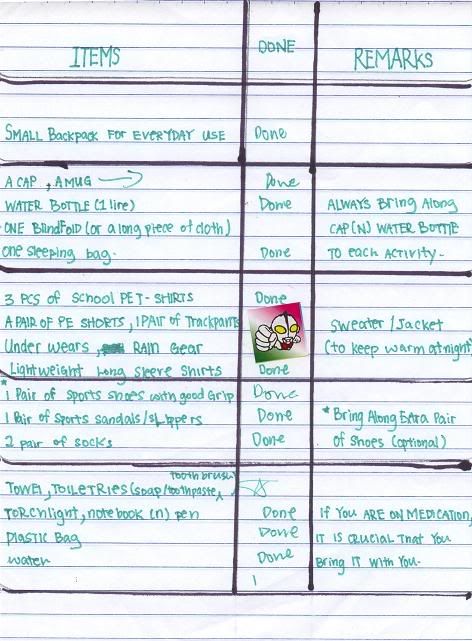 ITEMS DONE REMARKS
SMALL Backpack FOR EVERYDAY USE Done
A CAP, A MUG Done
WATER BOTTLE (1 lire) Done ALWAYS Bring Along
ONE BlindFOlD (or a long piece of cloth) CAP (N) WATER BOTTLE
one sleeping bag. Done TO each ACTIVITY.
3 PCS of School PET-SHIRTS Done
A PAIR OF PE SHORTS, 1 PAIR of Trackpants Sweater / Jacket
Under wears, RAIN Gear (to keep warm at night)
Lightweight Long Sleeve Shirts Done
* 1 Pair of sports shoes with good Grip Done
1 Pair of Sports sandals/slippers Done * Bring Along Extra Pair
2 pair of socks Done of Shoes (optional)
tooth brush
TOWEl, TOILETRIES (soap/toothpaste,
Torchlight, notebook (n) pen Done If You ARE ON MEDICATION,
PLASTIC Bag Done IT IS CRUCIAL THAT YOU
water Done Bring IT with You.